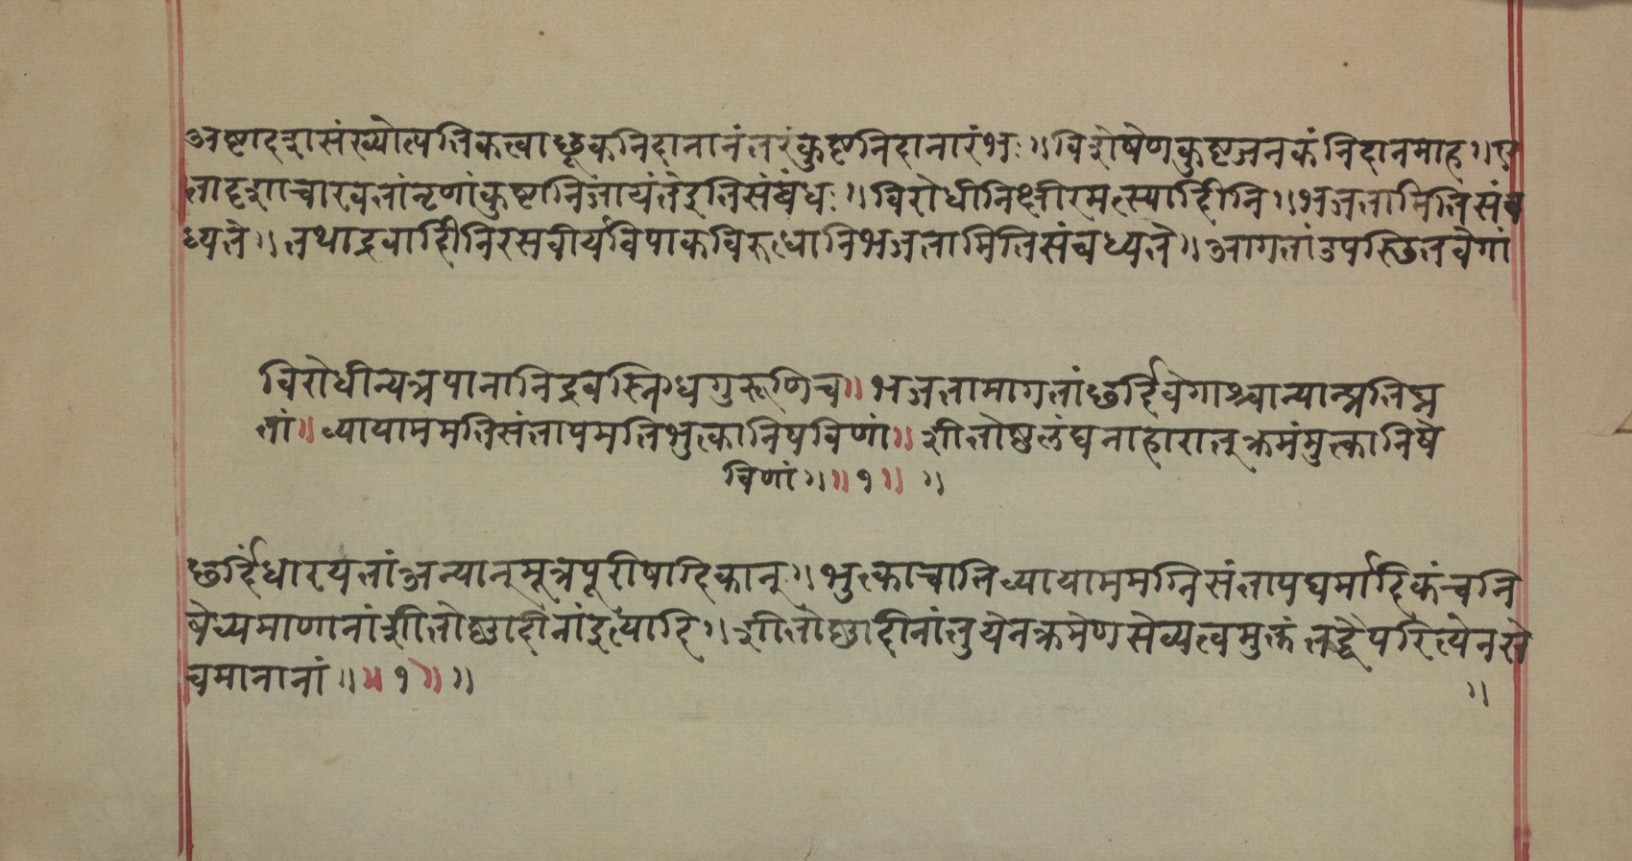 अष्टादशसंख्योत्पत्तिकत्वाछूकनिदानानंतरंकुष्टनिदानारंभः॥विशेषेणकुष्टजनकंनिदानमाह॥ए
तादृशाचारवतांनृणांकुष्टानिजायंतेइतिसंबंधः॥विरोधीनिक्षीरमत्स्यादीनि॥भजतामितिसंब
ध्यते॥तथाद्रवादीनिरसवीर्यविपाकविरुधानिभजतामितिसंबध्यते॥आगतांउपस्छितवेगां
विरोधीन्यन्नपानानिद्रवस्निग्धगुरूणिच॥भजतामागतांछर्दिंवेगाश्चान्यान्प्रतिघ्न
तां॥व्यायाममतिसंतापमतिभुत्कानिषविणां॥शीतोष्णलंघनाहारात्क्रमंमुत्कानिषे
विणां॥॥१॥॥
छर्दिंधारयतांअन्यान्मूत्रपूरीषादिकान्॥भुत्काचातिव्यायाममग्निसंतापघर्मादिकंचनि
षेव्यमाणानांशीतोष्णादीनांइत्यादि॥शीतोष्णादीनांतुयेनक्रमेणसेव्यत्वमुक्तंतद्वैपरित्येनसे
वमानानां॥॥१॥॥ ॥